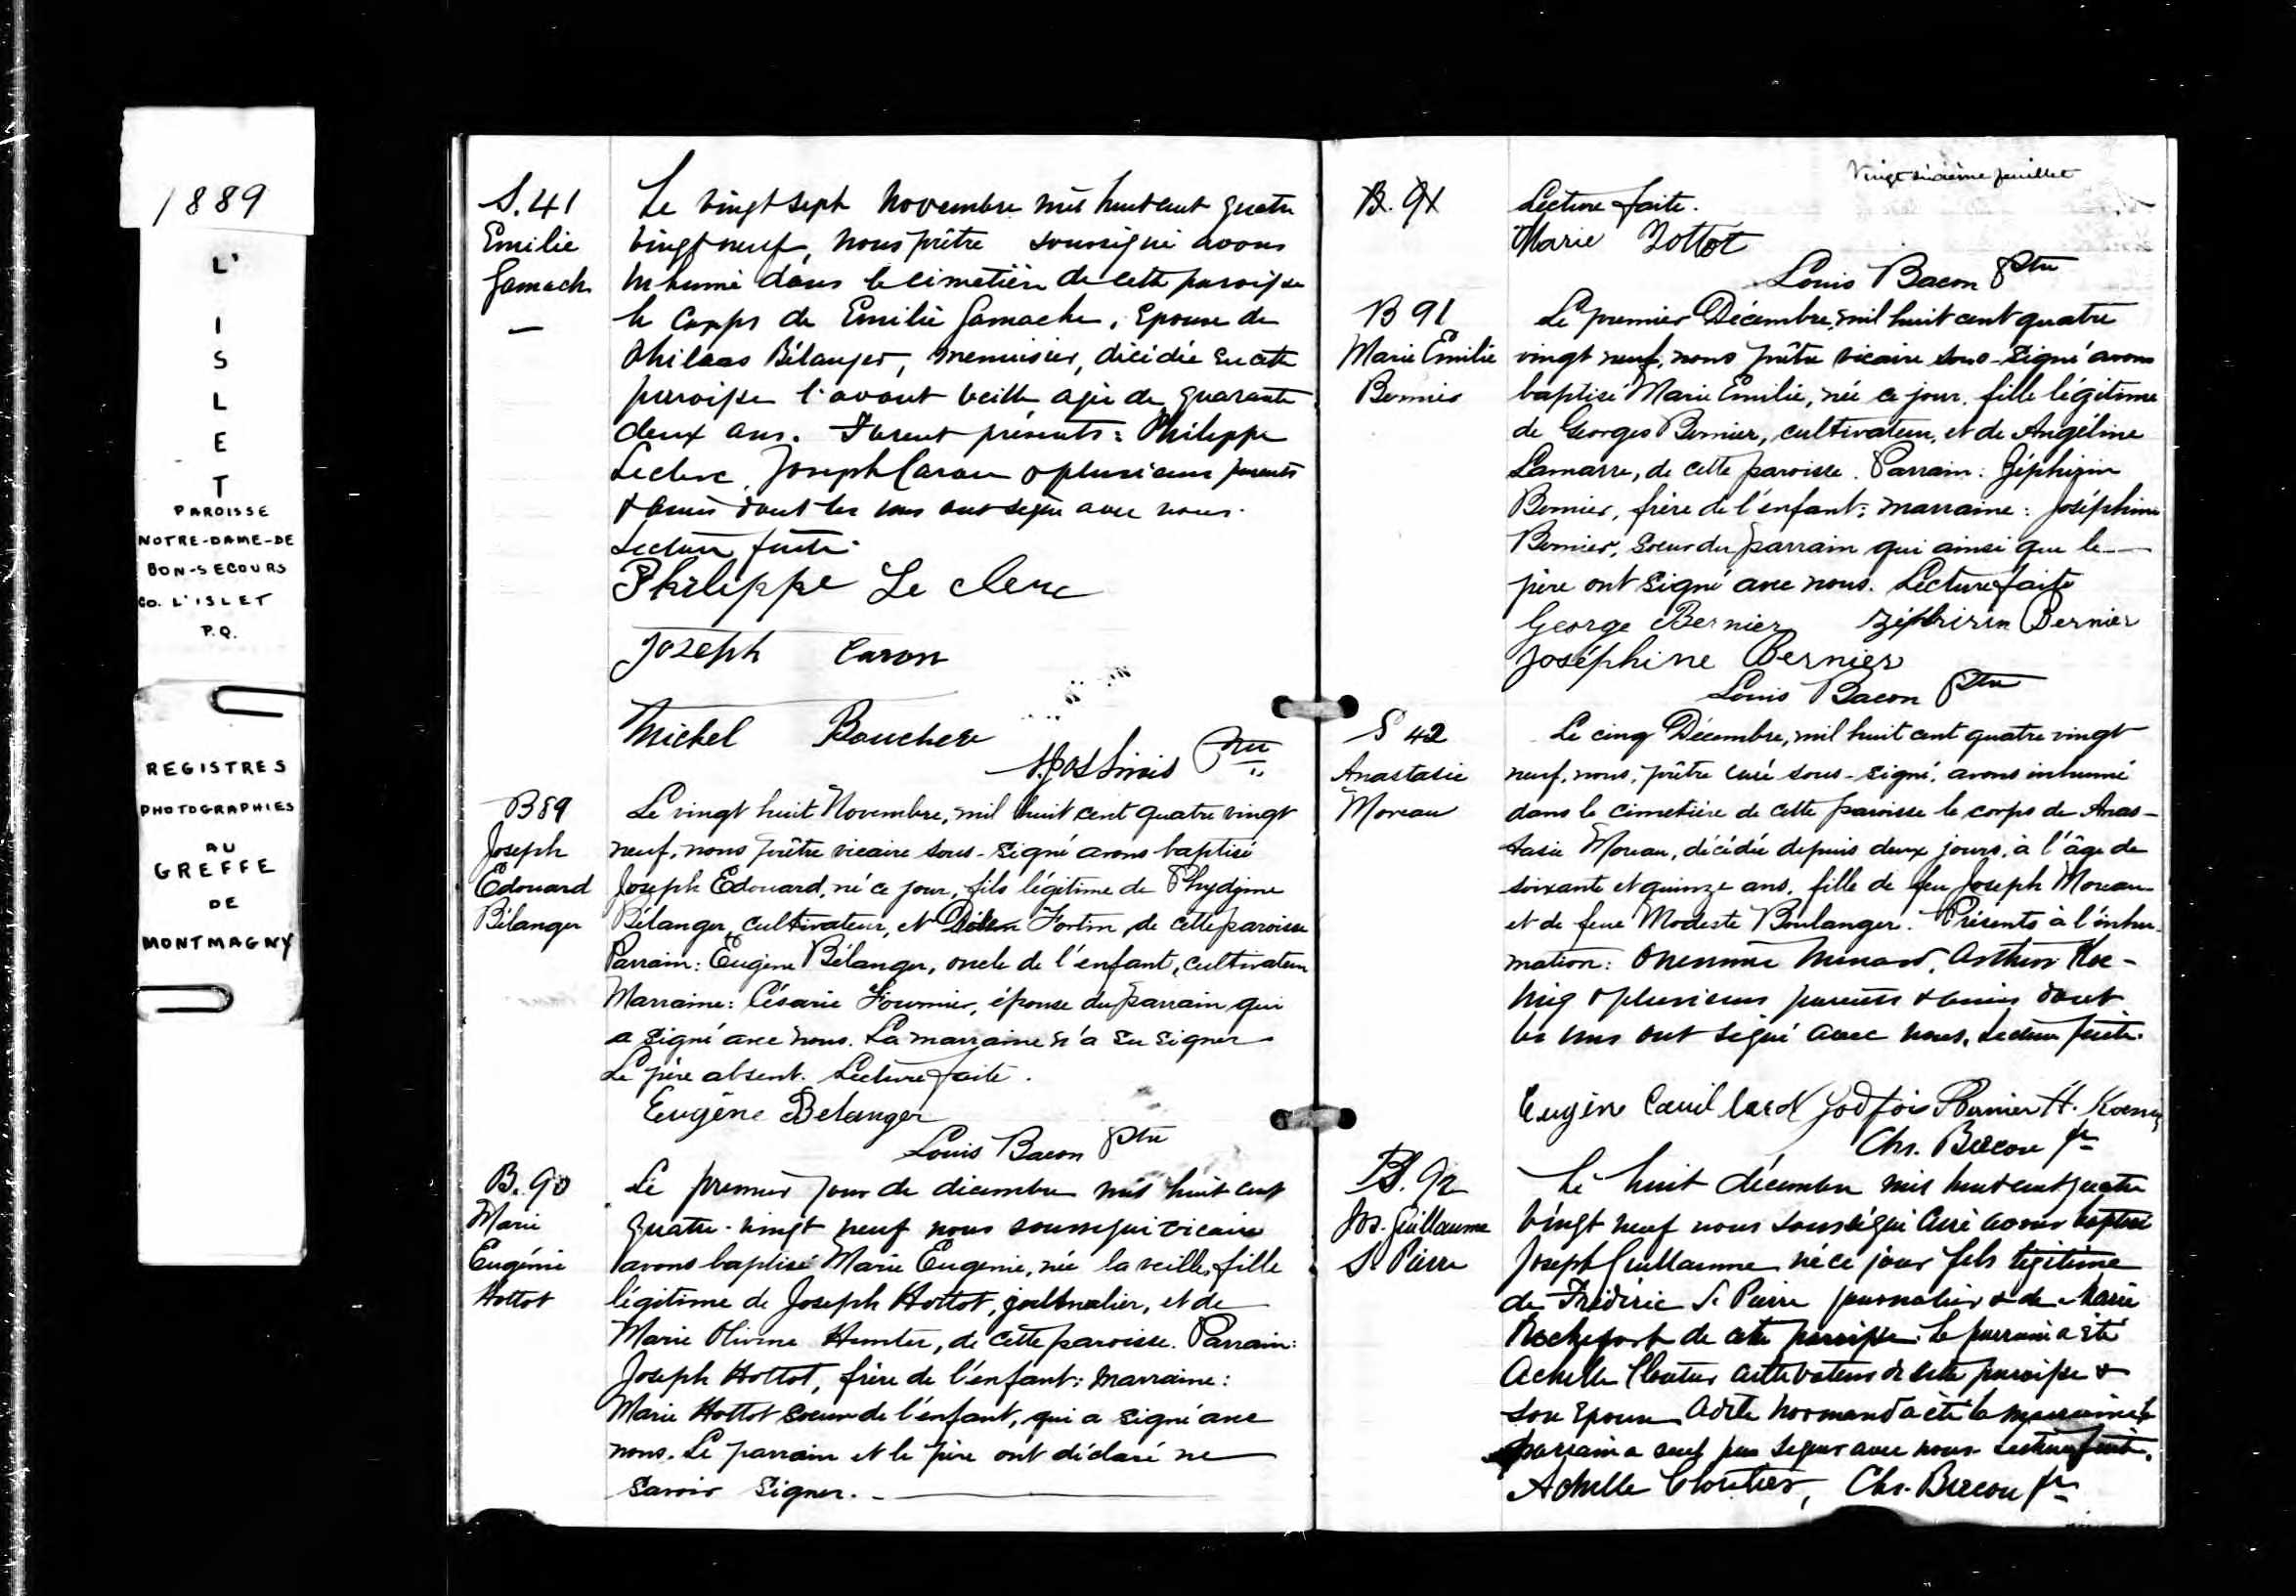 1889
L'
I
S
L
E
T
PAROISSE
NOTRE-DAME-DE
BON-SECOURS
CO. L'ISLET
P.Q.
REGISTRES
PHOTOGRAPHIES
AU
GREFFE
DE
MONTMAGNY
S. 41
Emilie
Gamache
Le vingt sept Novembre mil huit cent quatre
vingt neuf, nous prêtre soussigné avons
inhumé dans le cimetière de cette paroisse
le corps de Emilie Gamache, Epouse de
Philéas Bélanger, menuisier, décédée en cette
paroisse l'avant veille agée de quarante
deux ans. Furent présents: Philippe
Leclerc, Joseph Caron & plusieurs parents
& amis dont les uns ont signé avec nous.
Lecture faite.
Philippe Le clerc
Jozeph Caron
Michel Boucher
Ptre
B 89
Joseph
Edouard
Bélanger
Le vingt huit Novembre, mil huit cent quatre vingt
neuf, nous prêtre vicaire sous-signé avons baptisé
Joseph Edouard, né ce jour, fils légitime de Phydime
Bélanger, cultivateur, et Fortin, de cette paroisse
Parrain: Eugène Bélanger, oncle de l'enfant, cultivateur
Marraine: Césarie Fournier, épouse du parrain qui
a signé avec nous. La marraine n'a su signer
Le père absent. Lecture faite.
Eugène Belanger
Louis Bacon Ptre
B. 90
Marie
Eugénie
Hottot
Le premier jour de décembre mil huit cent
quatre-vingt neuf nous soussigné vicaire
avons baptisé Marie Eugenie, née la veille, fille
légitime de Joseph Hottot, journalier, et de
Marie Olivine Hunter, de cette paroisse. Parrain:
Joseph Hottot, frère de l'enfant: marraine:
Marie Hottot soeur de l'enfant, qui a signé avec
nous. Le parrain et le père ont déclaré ne
savoir signer.
Vingt sixième feuillet
B. 91
Lecture faite.
Marie Hottot
Louis Bacon Ptre
B 91
Marie Emilie
Bernier
Le premier Décembre, mil huit cent quatre
vingt neuf, nous prêtre vicaire sous-signé avons
baptisé Marie Emilie, née ce jour, fille légitime
de Georges Bernier, cultivateur, et de Angéline
Lamarre, de cette paroisse. Parrain: Zéphirin
Bernier, frère de l'enfant; marraine: Joséphine
Bernier, soeur du parrain qui ainsi que le
père ont signé avec nous. Lecture faite
George Bernier Zéphirin Bernier
Joséphine Bernier
Louis Bacon Ptre
S 42
Anastasie
Moreau
Le cinq Décembre, mil huit cent quatre vingt
neuf, nous, prêtre curé sous-signé, avons inhumé
dans le cimetière de cette paroisse le corps de Anas-
tasie Moreau, décédée depuis deux jours, à l'âge de
soixante et quinze ans, fille de feu Joseph Moreau
et de feue Modeste Boulanger. Présents à l'inhu-
mation: Onésime Ménard, Arthur Koe-
nig & plusieurs parents & amis dont
les uns ont signé avec nous. Lecture faite.
Eugène Bernier H. Koenig
Chs. Bacon
B. 92
Jos. Guillaume
St Pierre
Le huit décembre mil huit cent quatre
vingt neuf nous soussigné curé avons baptisé
Joseph Guillaume né ce jour fils légitime
de Frédéric St Pierre journalier & de Marie
Rochefort de cette paroisse. le parrain a été
Achille Cloutier cultivateur de cette paroisse &
son epouse Adèle Normand a été la marraine le
parrain a seul pu signer avec nous. Lecture faite.
Achille Cloutier, Chs. Bacon